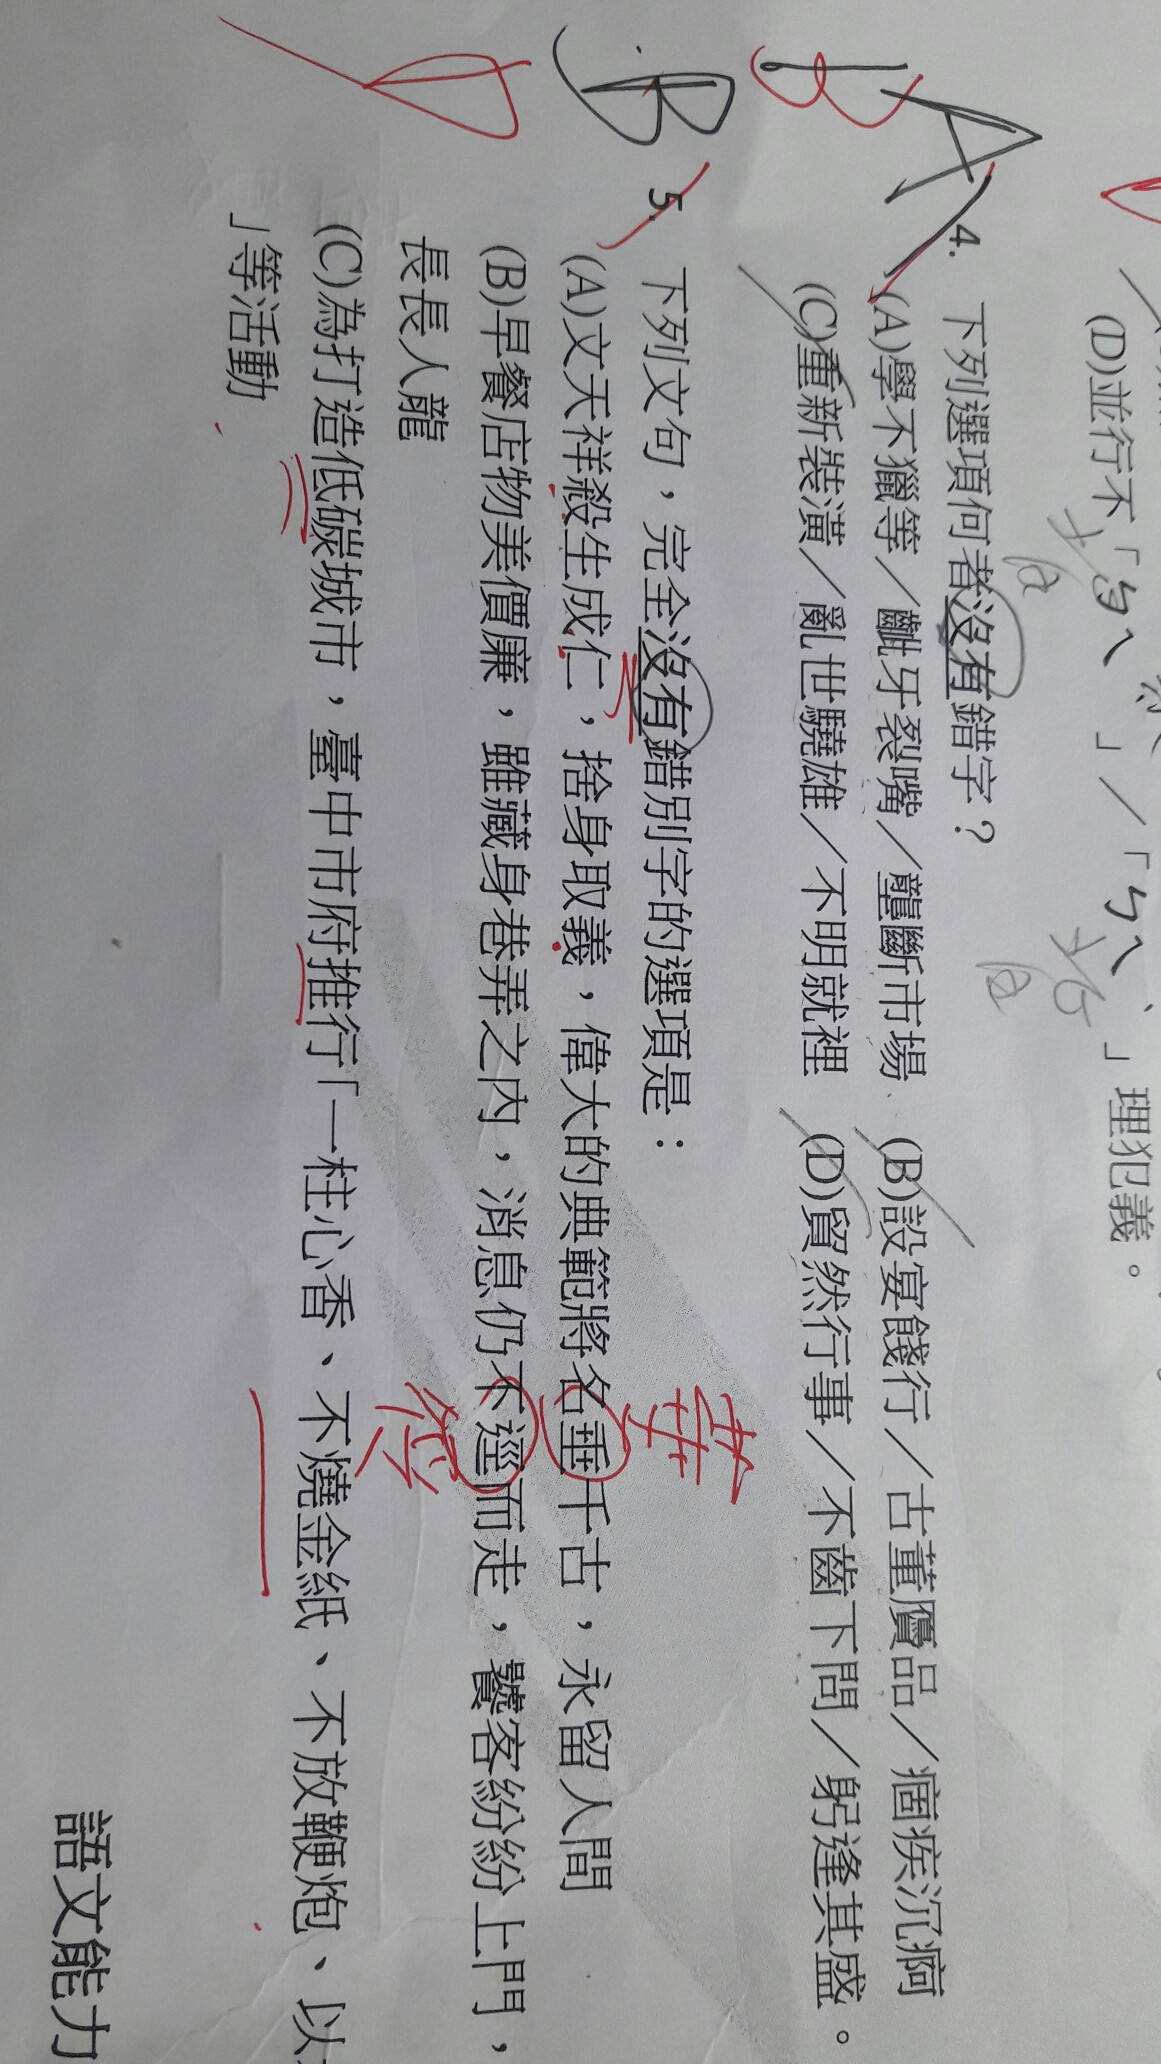 (D)並行不「ㄅㄟˋ」／「ㄅㄟˋ」理犯義。
4. 下列選項何者沒有錯字？
(A)學不獵等／齜牙裂嘴／壟斷市場 (B)設宴餞行／古董贗品／痼疾沉痾
(C)重新裝潢／亂世驍雄／不明就裡 (D)貿然行事／不齒下問／躬逢其盛。
A
B
5. 下列文句，完全沒有錯別字的選項是：
B
(A)文天祥殺生成仁，捨身取義，偉大的典範將名垂千古，永留人間
(B)早餐店物美價廉，雖藏身巷弄之內，消息仍不逕而走，饕客紛紛上門，
長長人龍
(C)為打造低碳城市，臺中市府推行「一柱心香、不燒金紙、不放鞭炮、以
」等活動
語文能力